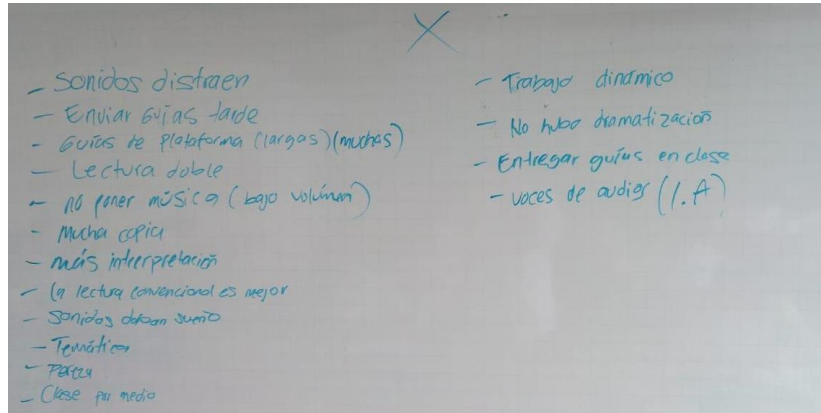 X
- Sonidos distraen
- Enviar Guías tarde
- Guías de Plataforma (largas) (muchas)
- Lectura doble
- no poner música (bajo volúmen)
- Mucha copia
- más interpretación
- la lectura convencional es mejor
- Sonidos daban sueño
- Temática
- Pereza
- Clase por medio
- Trabajo dinámico
- No hubo dramatización
- Entregar guías en clase
- voces de audios (I.A)